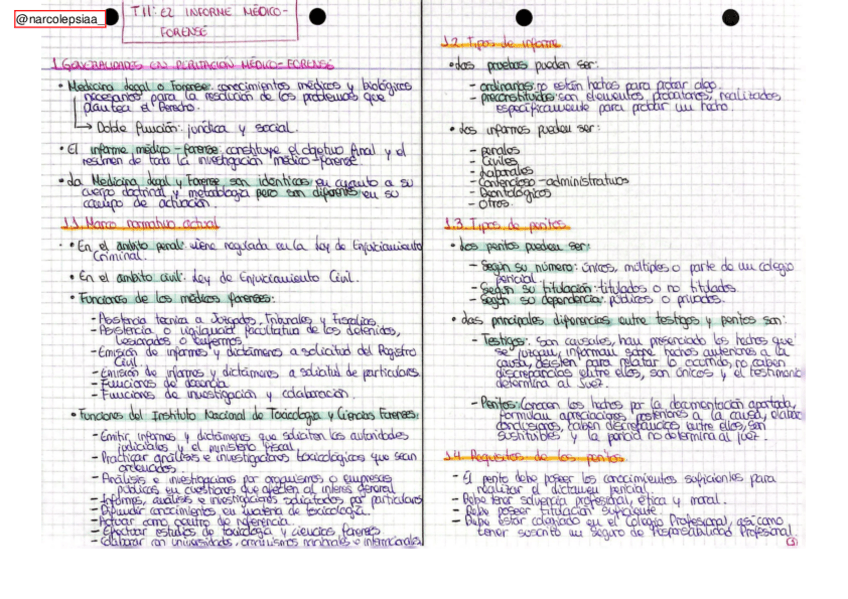 @narcolepsiaa_
T11: EL INFORME MÉDICO-
FORENSE
1. GENERALIDADES EN PERITACIÓN MÉDICO-FORENSE
• Medicina legal o Forense: conocimientos médicos y biológicos
necesarios para la resolución de los problemas que
plantea el Derecho.
→ Doble función: jurídica y social.
• El informe médico-forense: constituye el objetivo final y el
resumen de toda la investigación médico-forense
• La Medicina legal y Forense son idénticas en cuanto a su
cuerpo doctrinal y metodología pero son diferentes en su
campo de actuación.
1.1. Marco normativo actual
• En el ámbito penal: viene regulada en la Ley de Enjuiciamiento
Criminal.
• En el ámbito civil: Ley de Enjuiciamiento Civil.
• Funciones de los médicos forenses:
- Asistencia técnica a Juzgados, Tribunales y Fiscalías.
- Asistencia o vigilancia facultativa de los detenidos,
lesionados o enfermos.
- Emisión de informes y dictámenes a solicitud del Registro
Civil.
- Emisión de informes y dictámenes a solicitud de particulares.
- Funciones de docencia.
- Funciones de investigación y colaboración.
• Funciones del Instituto Nacional de Toxicología y Ciencias Forenses:
- Emitir informes y dictámenes que soliciten las autoridades
judiciales y el ministerio fiscal.
- Practicar análisis e investigaciones toxicológicas que sean
ordenados.
- Análisis e investigaciones por organismos o empresas
públicas en cuestiones que afecten al interés general
- Informes, análisis e investigaciones solicitados por particulares
- Difundir conocimientos en materia de toxicología.
- Actuar como centro de referencia.
- Efectuar estudios de toxicología y ciencias forenses.
- Colaborar con universidades, organismos nacionales e internacionales
1.2. Tipos de informe
• Las pruebas pueden ser:
- ordinarias: no están hechas para probar algo.
- preconstituidas: son elementos probatorios, realizados
específicamente para probar un hecho.
• Los informes pueden ser:
- penales
- Civiles
- Laborales
- Contencioso-administrativos
- Deontológicos
- Otros.
1.3. Tipos de peritos
• Los peritos pueden ser:
- Según su número: únicos, múltiples o parte de un colegio
pericial.
- Según su titulación: titulados o no titulados.
- Según su dependencia: públicos o privados.
• Las principales diferencias entre testigos y peritos son:
- Testigos: Son causales, han presenciado los hechos que
se juzgan, informan sobre hechos anteriores a la
causa, asisten para relatar lo ocurrido, no caben
discrepancias entre ellos, son únicos y el testimonio
determina al Juez.
- Peritos: Conocen los hechos por la documentación aportada,
formulan apreciaciones posteriores a la causa, elaboran
conclusiones, caben discrepancias entre ellos, son
sustituibles y la pericia no determina al juez.
1.4. Requisitos de los peritos
- El perito debe poseer los conocimientos suficientes para
realizar el dictamen pericial.
- Debe tener solvencia profesional, ética y moral.
- Debe poseer titulación suficiente.
- Debe estar colegiado en el Colegio Profesional, así como
tener suscrito un Seguro de Responsabilidad Profesional